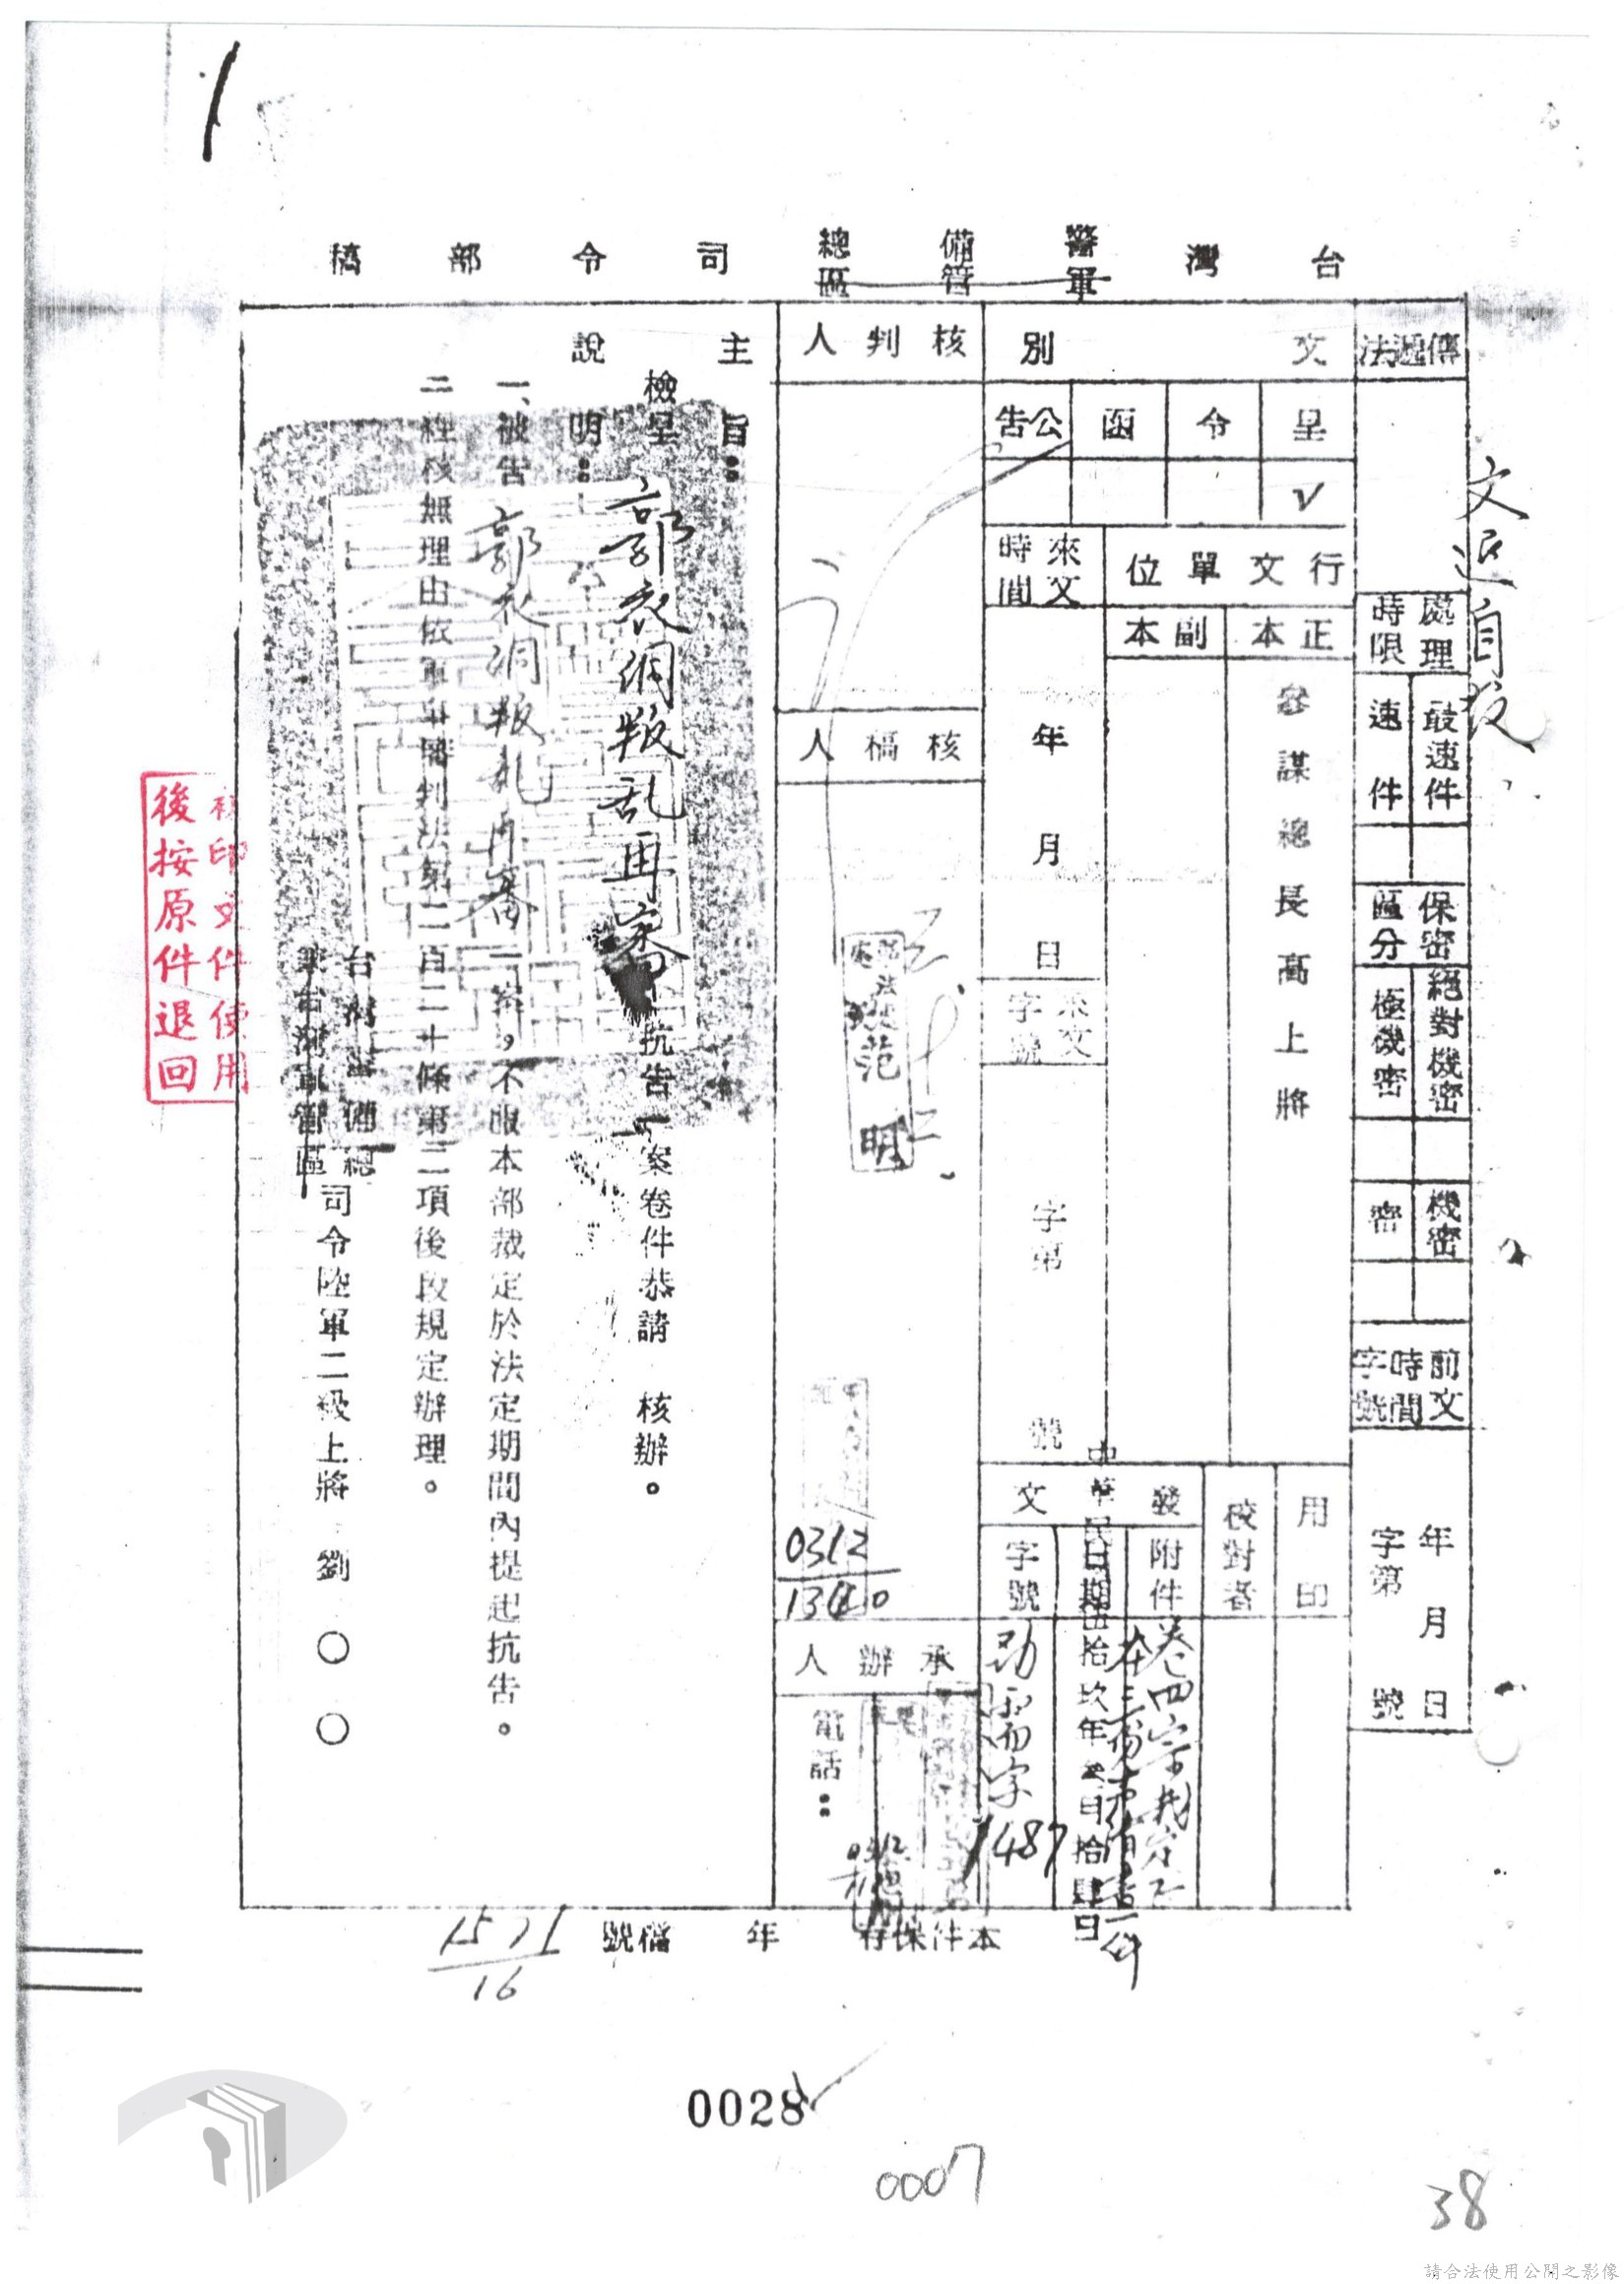 台灣警備總司令部稿
軍管區
文返自投
傳遞法
處理時限
最速件
速件
保密區分
絕對機密
極機密
機密
密
前文時間字號
年月日
字第號
文別
呈
令
函
公告
✓
行文單位
正本
副本
參謀總長高上將
來文時間
年月日
來文字號
字第號
用印
校對者
發文
附件
日期
字號
卷四宗
中華民國伍拾玖年
月拾肆日
勁需字
1487
核判人
核稿人
范明
0312
1340
承辦人
電話：
0312
主旨：
檢呈郭衣洞叛乱再審抗告一案卷件恭請 核辦。
說明：
一、被告郭衣洞叛乱再審一案，不服本部裁定於法定期間內提起抗告。
二經核無理由依軍事審判法第二百二十條第二項後段規定辦理。
台灣警備總
兼台灣軍管區
司令陸軍二級上將 劉○○
本件保存 年 檔號
1571
16
核印文件使用
後按原件退回
0028
0007
38
請合法使用公開之影像